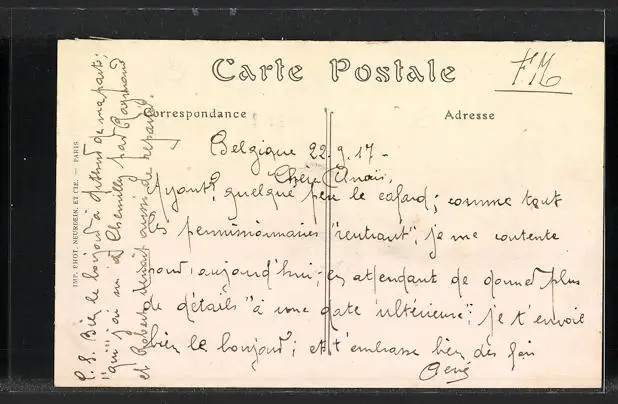 Carte Postale
FM
Correspondance
Adresse
Belgique 22.9.17-
Chère Anaïs,
Ayant, quelque peu le cafard; comme tout
permissionnaires "rentrant", je me contente
pour aujourd'hui; en attendant de donner plus
de détails "à une date ultérieure"; je t'envoie
bien le bonjour; et t'embrasse bien des fois
René
P.S. Bien le bonjour à de ma part;
"qui" j'ai vu à Chemilly par Raymond
et Robert devait aussi de repartir.
IMP. PHOT. NEURDEIN, ET CIE. — PARIS